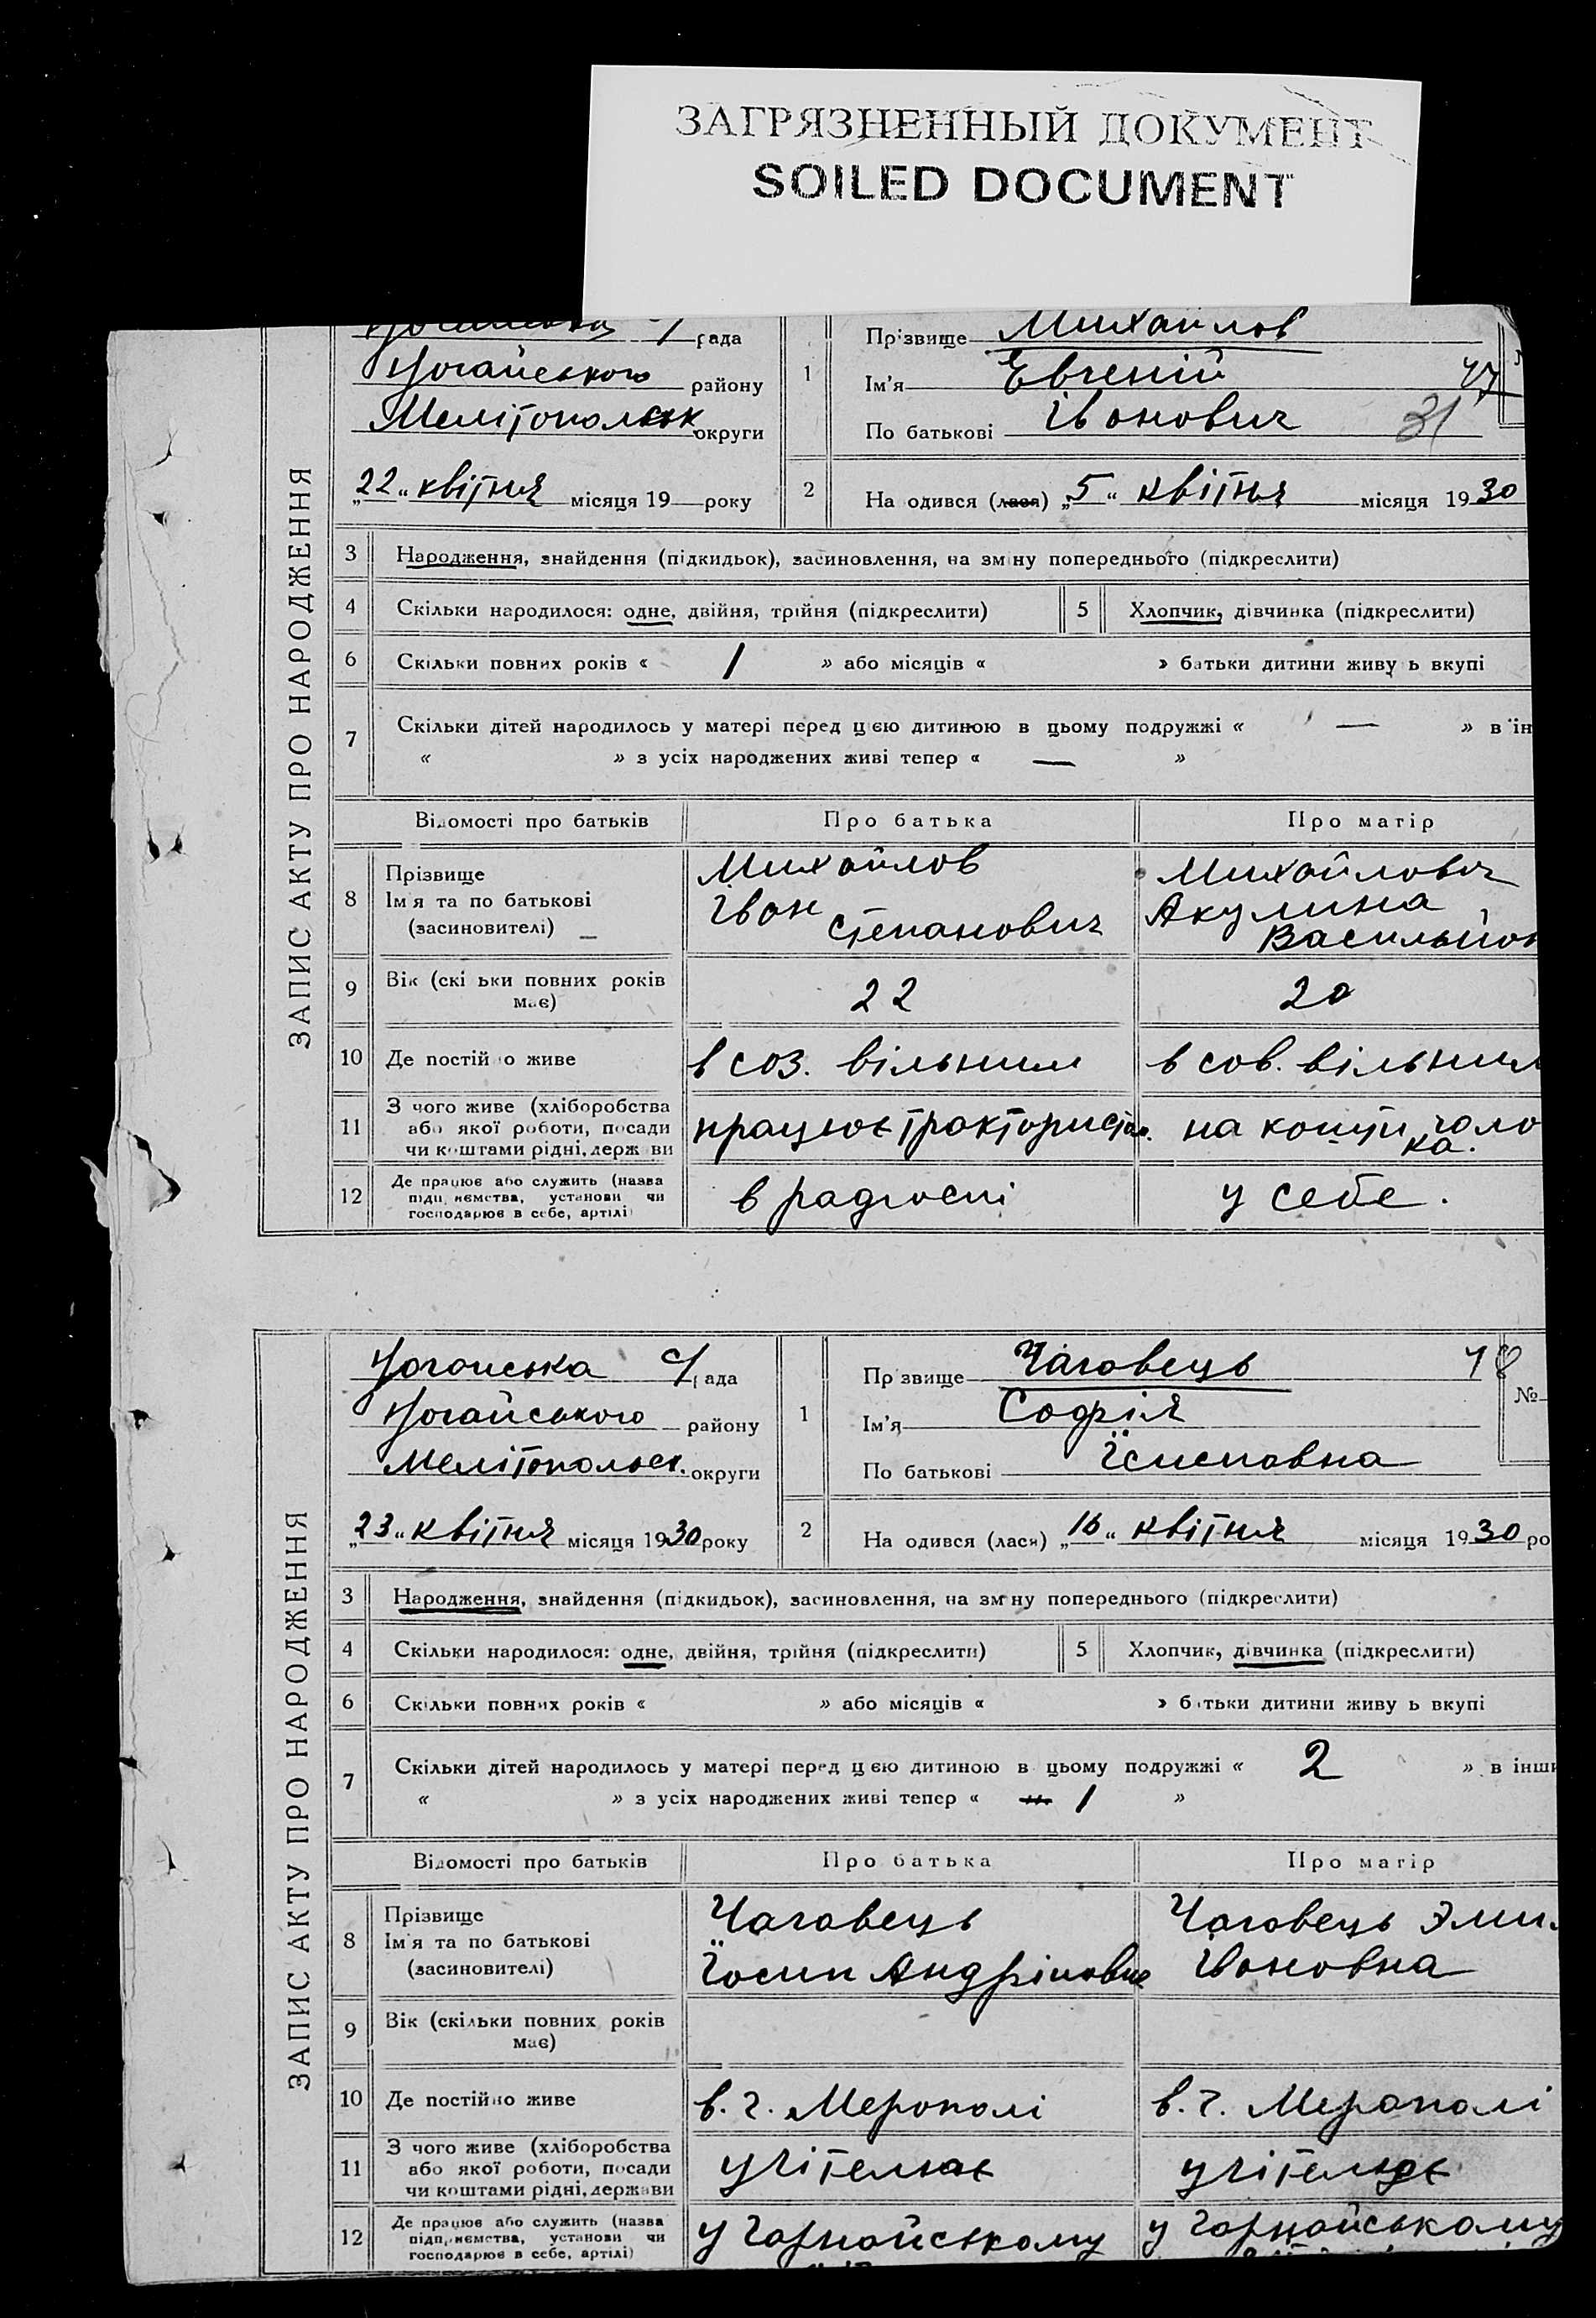 ЗАГРЯЗНЕННЫЙ ДОКУМЕНТ
SOILED DOCUMENT
ЗАПИС АКТУ ПРО НАРОДЖЕННЯ
рада
Ногайського району
Мелітопольск округи
„22“ квітня місяця 19 року
1
Прізвище Михайлов
Ім'я Евгеній 47
По батькові Івонович 31
2
На одився (лася) „5“ квітня місяця 1930
3 Народження, знайдення (підкидьок), засиновлення, на зміну попереднього (підкреслити)
4 Скільки народилося: одне, двійня, трійня (підкреслити)
5 Хлопчик, дівчинка (підкреслити)
6 Скільки повних років « 1 » або місяців « » батьки дитини живу ь вкупі
7 Скільки дітей народилось у матері перед цією дитиною в цьому подружжі « — » в ін
« » з усіх народжених живі тепер « — »
Відомості про батьків
Про батька
Про матір
8 Прізвище
Ім'я та по батькові
(засиновителі)
Михайлов
Івон
Степанович
Михайлович
Акулина
Васильйов
9 Вік (скі ьки повних років
має)
22
20
10 Де постій о живе
в соз. вільним
в сов. вільним
11 З чого живе (хліборобства
або якої роботи, посади
чи коштами рідні, держ ви
працює трактористом.
на кошти чоло
ка.
12 Де працює або служить (назва
підп, немства, установи чи
господарює в себе, артілі)
в радгоспі
у себе.
ЗАПИС АКТУ ПРО НАРОДЖЕННЯ
Ногаиська с/рада
Ногайського району
Мелітопольск. округи
„23“ квітня місяця 1930 року
1
Прізвище Чаговець 48
№
Ім'я Софія
По батькові
2
На одився (лася) „16“ квітня місяця 1930 ро
3 Народження, знайдення (підкидьок), засиновлення, на зміну попереднього (підкреслити)
4 Скільки народилося: одне, двійня, трійня (підкреслити)
5 Хлопчик, дівчинка (підкреслити)
6 Скільки повних років « » або місяців « » батьки дитини живу ь вкупі
7 Скільки дітей народилось у матері перед цією дитиною в цьому подружжі « 2 » в інши
« » з усіх народжених живі тепер « 1 »
Відомості про батьків
Про батька
Про матір
8 Прізвище
Ім'я та по батькові
(засиновителі)
Чаговець
Йосип
Чаговець Эми
Івоновна
9 Вік (скільки повних років
має)
10 Де постійно живе
в. г. Мерополі
в. г. Мерополі
11 З чого живе (хліборобства
або якої роботи, посади
чи коштами рідні, держави
учітелює
учітелює
12 Де працює або служить (назва
підп, немства, установи чи
господарює в себе, артілі)
у
у